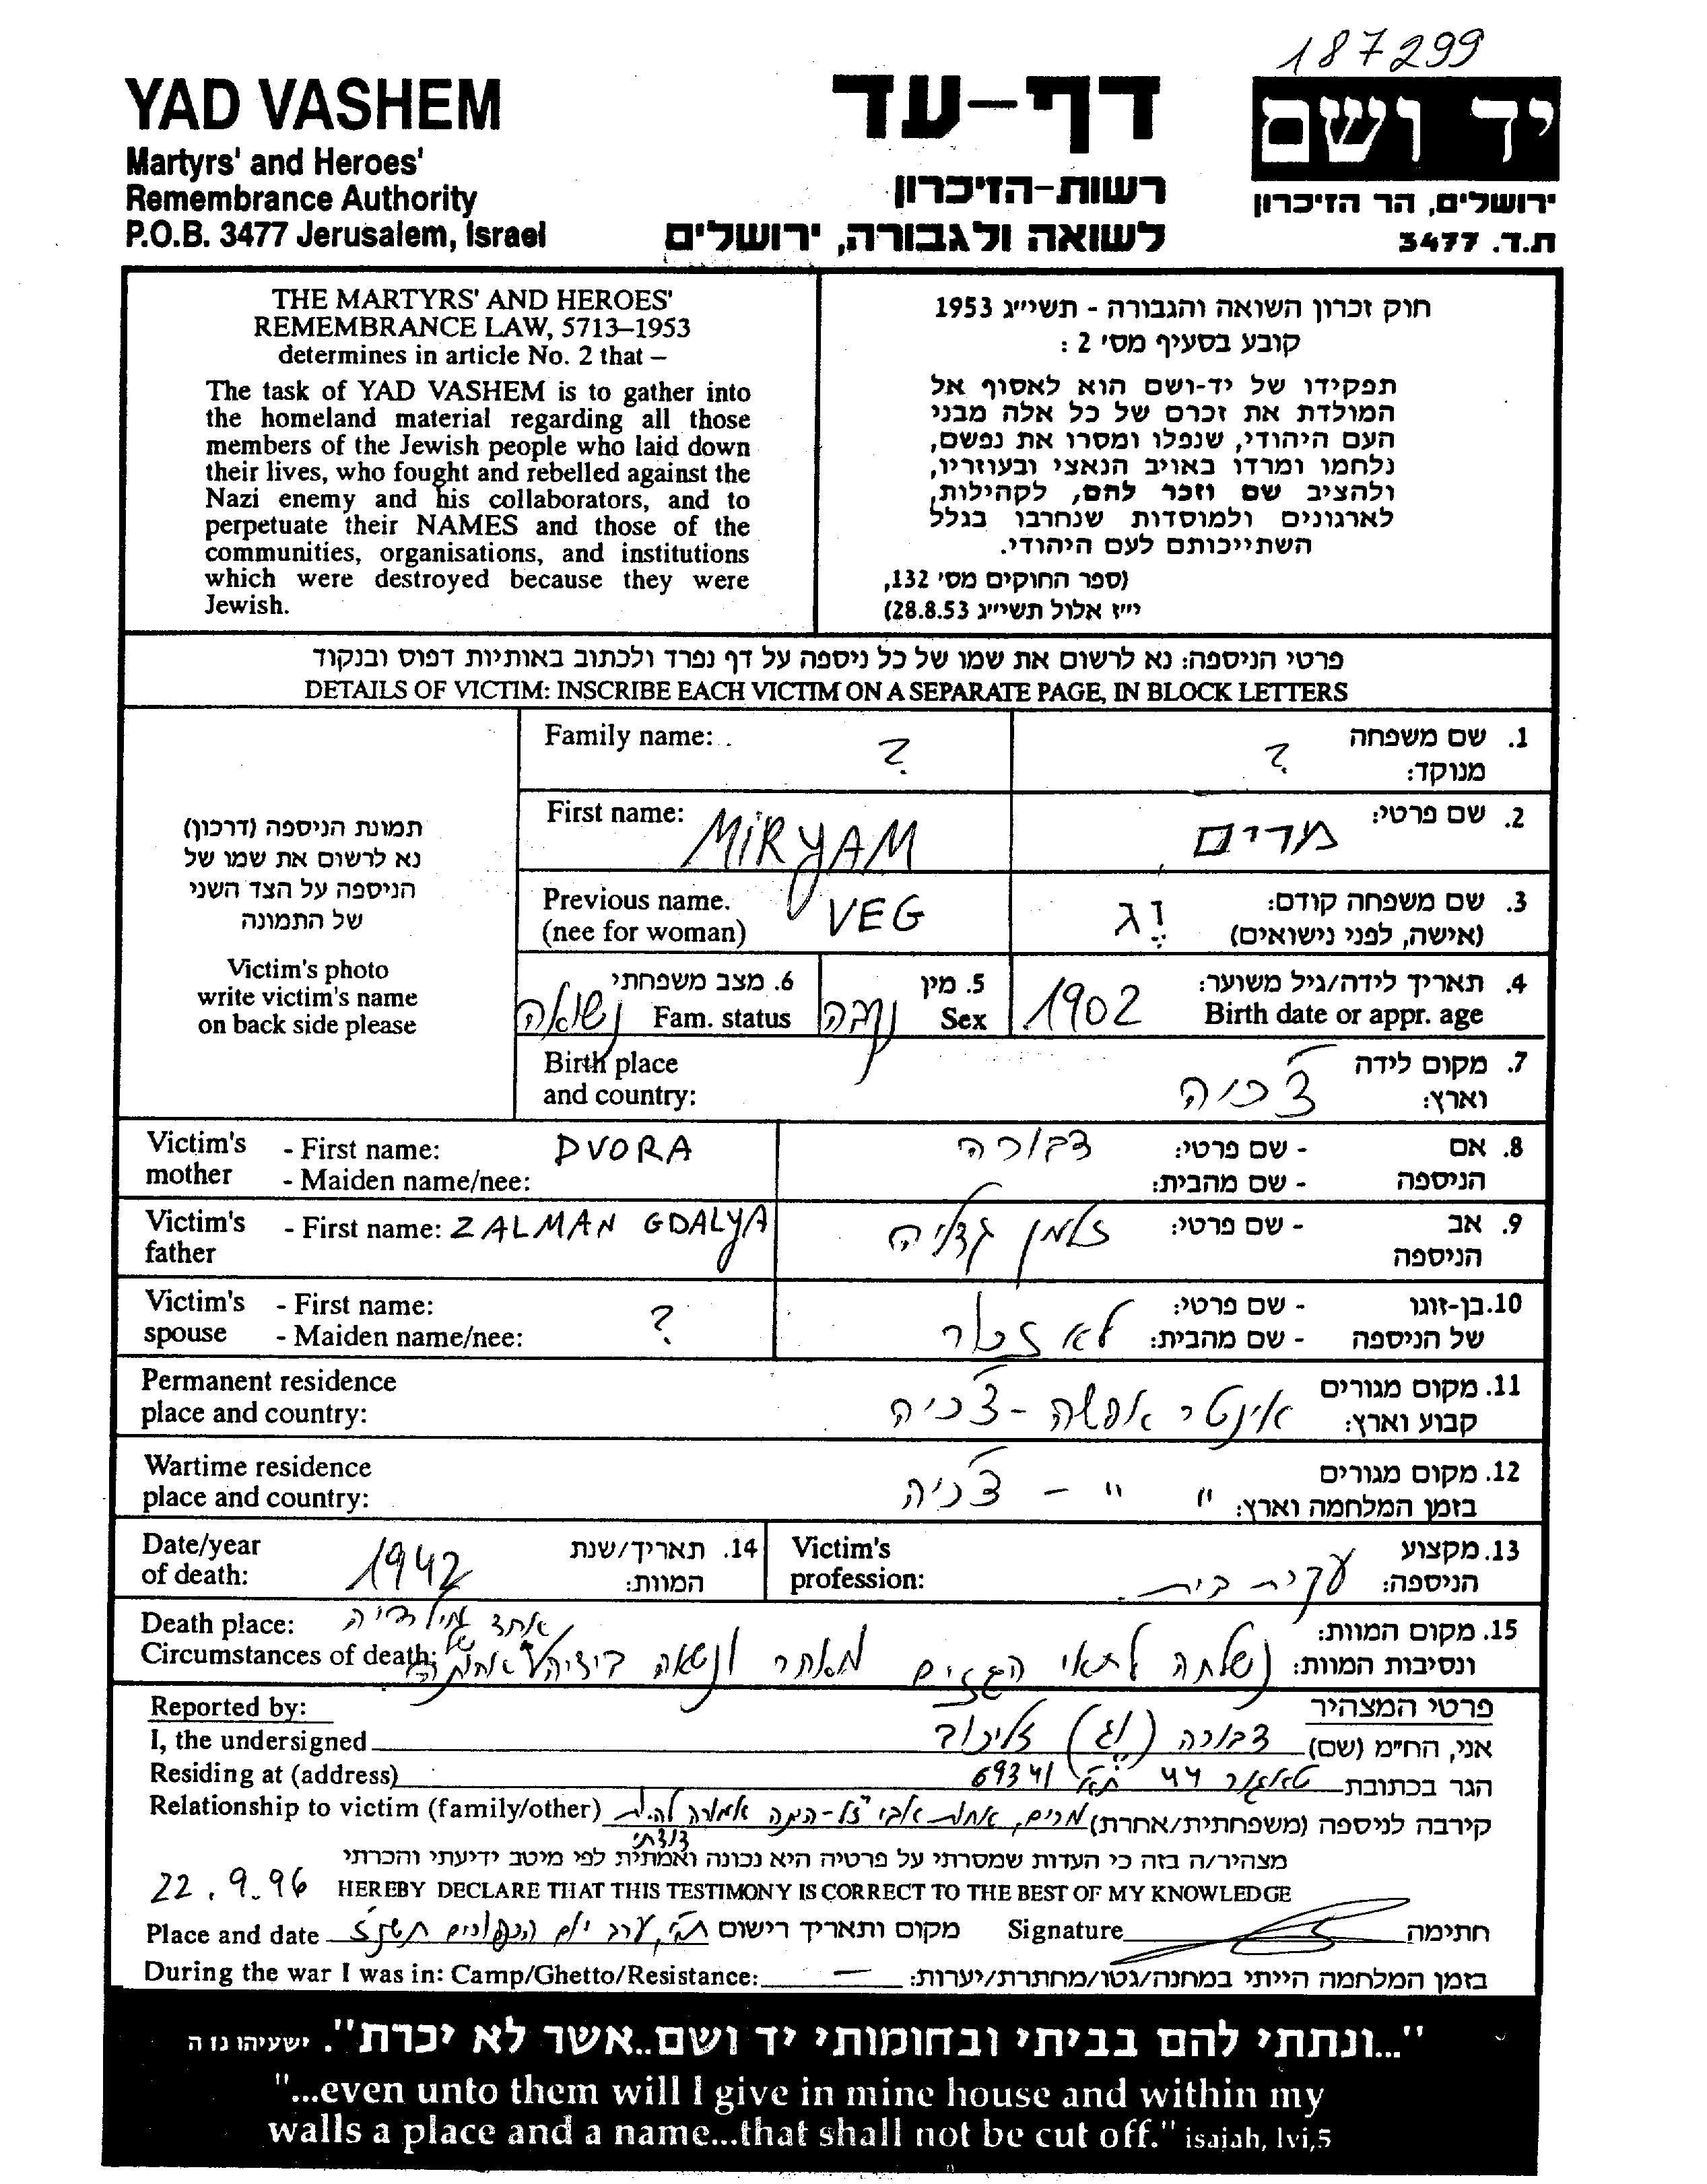 187299
YAD VASHEM
Martyrs' and Heroes'
Remembrance Authority
P.O.B. 3477 Jerusalem, Israel
דף-עד
רשות-הזיכרון
לשואה ולגבורה, ירושלים
יד ושם
ירושלים, הר הזיכרון
ת.ד. 3477
THE MARTYRS' AND HEROES'
REMEMBRANCE LAW, 5713–1953
determines in article No. 2 that –
The task of YAD VASHEM is to gather into
the homeland material regarding all those
members of the Jewish people who laid down
their lives, who fought and rebelled against the
Nazi enemy and his collaborators, and to
perpetuate their NAMES and those of the
communities, organisations, and institutions
which were destroyed because they were
Jewish.
חוק זכרון השואה והגבורה - תשי"ג 1953
קובע בסעיף מס' 2 :
תפקידו של יד-ושם הוא לאסוף אל
המולדת את זכרם של כל אלה מבני
העם היהודי, שנפלו ומסרו את נפשם,
נלחמו ומרדו באויב הנאצי ובעוזריו,
ולהציב שם וזכר להם, לקהילות,
לארגונים ולמוסדות שנחרבו בגלל
השתייכותם לעם היהודי.
(ספר החוקים מס' 132,
י"ז אלול תשי"ג 28.8.53)
פרטי הניספה: נא לרשום את שמו של כל ניספה על דף נפרד ולכתוב באותיות דפוס ובנקוד
DETAILS OF VICTIM: INSCRIBE EACH VICTIM ON A SEPARATE PAGE, IN BLOCK LETTERS
תמונת הניספה (דרכון)
נא לרשום את שמו של
הניספה על הצד השני
של התמונה
Victim's photo
write victim's name
on back side please
Family name: ?
1. שם משפחה מנוקד: ?
First name: MIRYAM
2. שם פרטי: מרים
Previous name. (nee for woman) VEG
3. שם משפחה קודם: (אישה, לפני נישואים) וֶג
4. תאריך לידה/גיל משוער: Birth date or appr. age 1902
5. מין Sex נקבה
6. מצב משפחתי Fam. status נשואה
Birth place and country:
7. מקום לידה וארץ: צ'כיה
Victim's mother - First name: DVORA
- Maiden name/nee:
8. אם הניספה - שם פרטי: דבורה
- שם מהבית:
Victim's father - First name: ZALMAN GDALYA
9. אב הניספה - שם פרטי: זלמן גדליה
Victim's spouse - First name:
- Maiden name/nee: ?
10. בן-זוגו של הניספה - שם פרטי:
- שם מהבית: לא זכור
Permanent residence place and country:
11. מקום מגורים קבוע וארץ: אינטר אפשה - צ'כיה
Wartime residence place and country:
12. מקום מגורים בזמן המלחמה וארץ: " " - צ'כיה
Date/year of death: 1942
14. תאריך/שנת המוות:
Victim's profession:
13. מקצוע הניספה: עקרת בית
Death place:
Circumstances of death:
15. מקום המוות:
ונסיבות המוות: נשלחה לתאי הגזים מאחר ונשאה בידיה של אחת אחד
Reported by:
פרטי המצהיר
I, the undersigned
אני, הח"מ (שם) דבורה (וג) זליכוב
Residing at (address)
הגר בכתובת טאגור 44 ת"א 69341
Relationship to victim (family/other)
קירבה לניספה (משפחתית/אחרת) מרים, אחות אבי ז"ל - היתה אמורה להיות
דודתי
מצהיר/ה בזה כי העדות שמסרתי על פרטיה היא נכונה ואמתית לפי מיטב ידיעתי והכרתי
22.9.96
HEREBY DECLARE THAT THIS TESTIMONY IS CORRECT TO THE BEST OF MY KNOWLEDGE
Place and date
מקום ותאריך רישום ת"א, ערב יום הכפורים תשנ"ז
Signature
חתימה
During the war I was in: Camp/Ghetto/Resistance: —
בזמן המלחמה הייתי במחנה/גטו/מחתרת/יערות:
"...ונתתי להם בביתי ובחומותי יד ושם..אשר לא יכרת". ישעיהו נו ה
"...even unto them will I give in mine house and within my
walls a place and a name...that shall not be cut off." isaiah, lvi,5